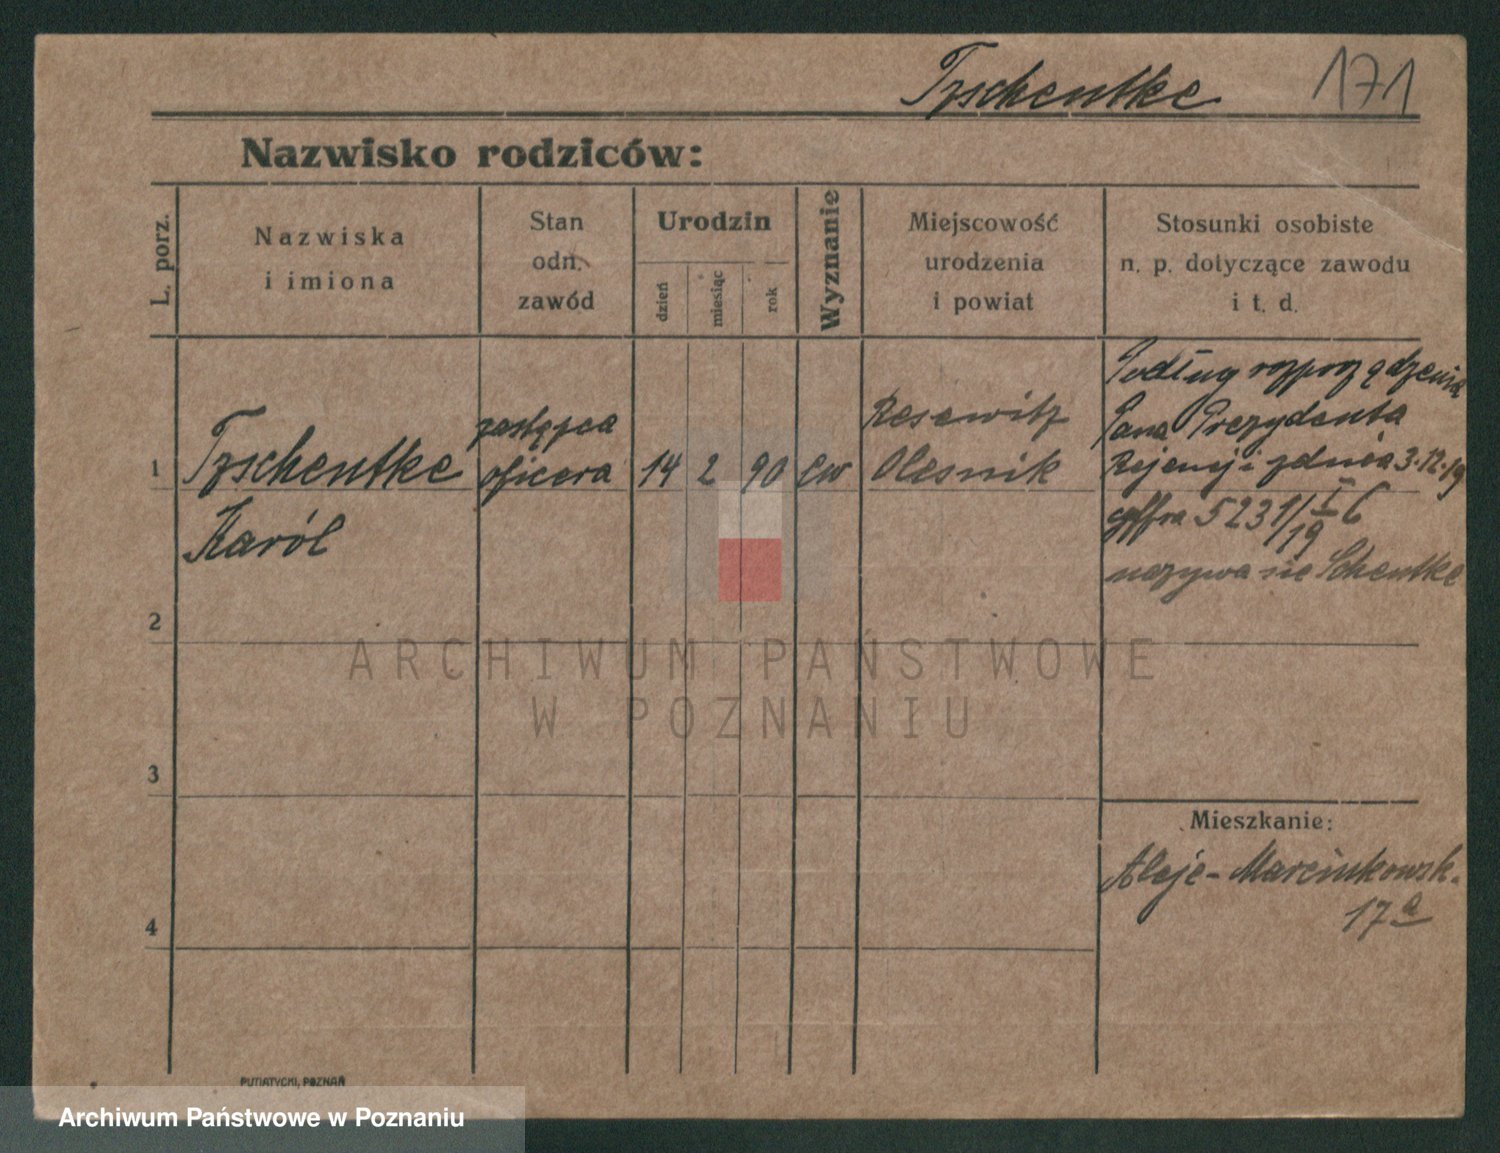 Tzschentke 171
Nazwisko rodziców:
L. porz.
Nazwiska
i imiona
Stan
odn.
zawód
Urodzin
dzień
miesiąc
rok
Wyznanie
Miejscowość
urodzenia
i powiat
Stosunki osobiste
n. p. dotyczące zawodu
i t. d.
1
Tzschentke
Karól
zastępca
oficera
14 2 90 ew
Resewitz
Olesnik
Podług rozporządzenia
Pana Prezydenta
Rejencji z dnia 3.12.19
cyffra 5231/19 I C
nazywa sie Schentke
2
3
4
Mieszkanie:
Aleje-Marcinkowsk.
17a
PUTIATYCKI, POZNAŃ
ARCHIWUM PAŃSTWOWE
W POZNANIU
Archiwum Państwowe w Poznaniu